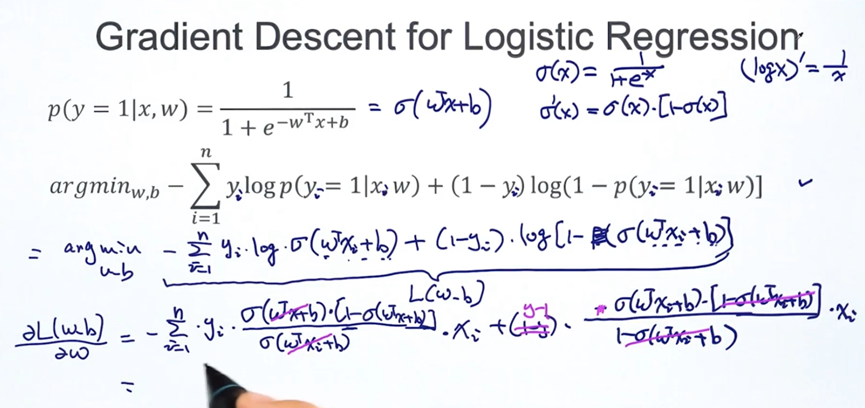 Gradient Descent for Logistic Regression
σ(x) = 1/(1+e^-x) (log x)' = 1/x
p(y = 1|x, w) = 1/(1 + e^(−w^T x+b)) = σ(w^T x+b) σ'(x) = σ(x)·[1-σ(x)]
argmin_{w,b} − ∑_{i=1}^{n} y_i log p(y_i = 1|x_i, w) + (1 − y_i) log(1 − p(y_i = 1|x_i, w)] ✓
= argmin_{w,b} - ∑_{i=1}^{n} y_i · log σ(w^T x_i+b) + (1-y_i) · log[1- σ(w^T x_i+b)]
L(w,b)
∂L(w,b)/∂w = - ∑_{i=1}^{n} · y_i · σ(w^T x_i+b)·[1-σ(w^T x_i+b)]/σ(w^T x_i+b) · x_i + (y-1) · σ(w^T x_i+b)·[1-σ(w^T x_i+b)]/1-σ(w^T x_i+b) · x_i
=